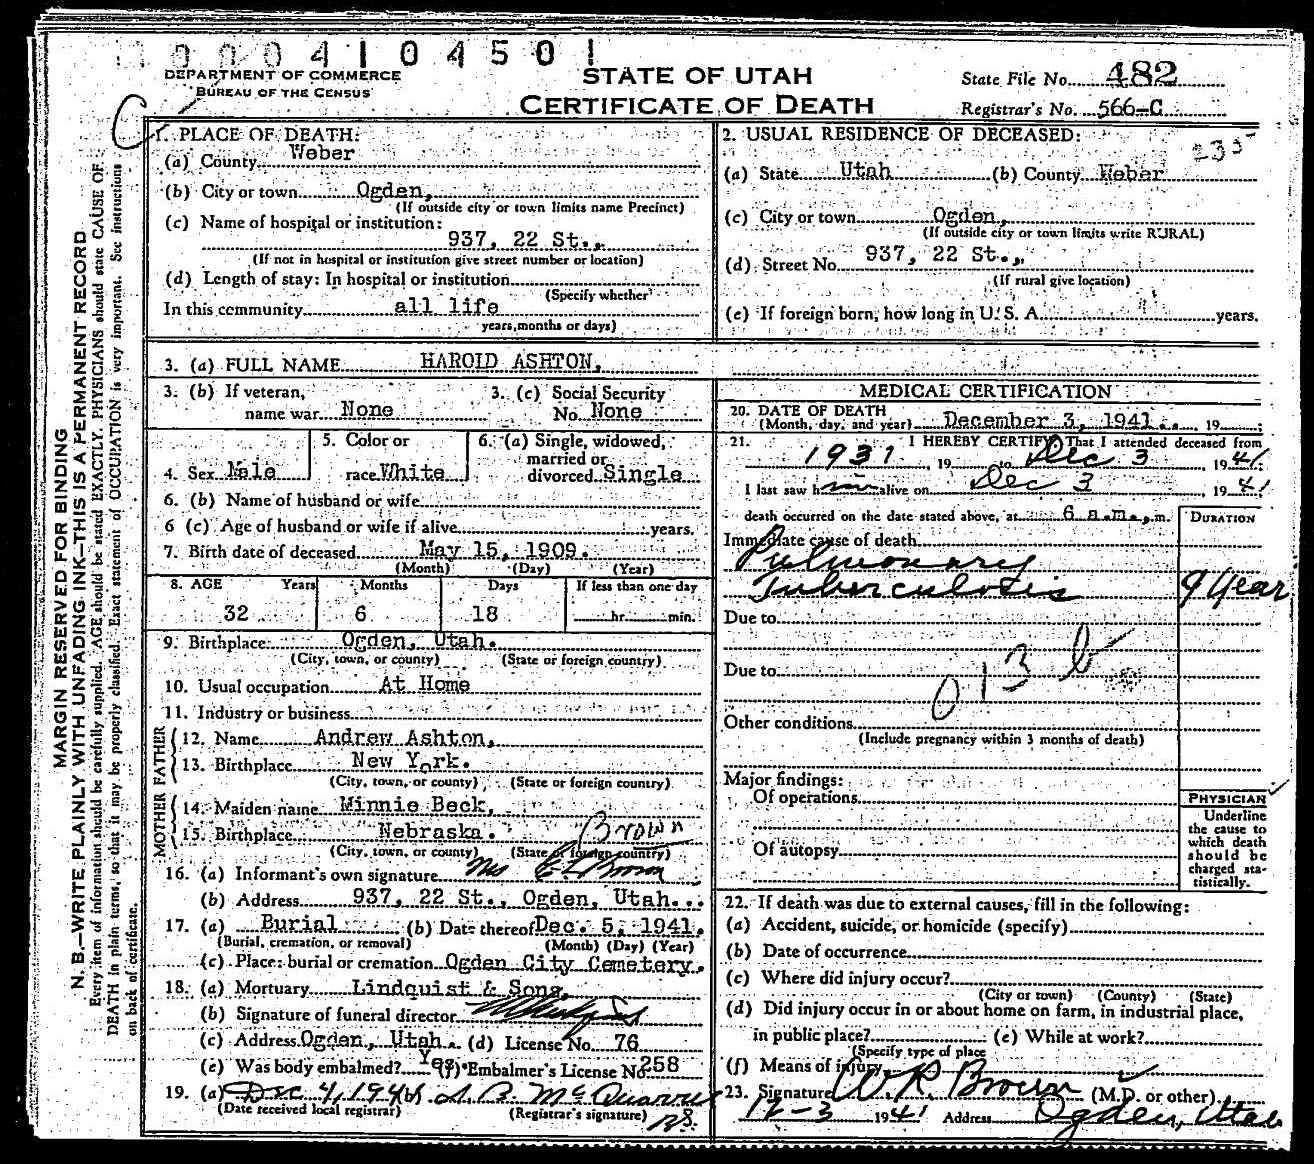 0004104501
DEPARTMENT OF COMMERCE
BUREAU OF THE CENSUS
STATE OF UTAH
CERTIFICATE OF DEATH
State File No. 482
Registrar's No. 566-C
1. PLACE OF DEATH:
(a) County Weber
(b) City or town Ogden,
(If outside city or town limits name Precinct)
(c) Name of hospital or institution:
937, 22 St.,
(If not in hospital or institution give street number or location)
(d) Length of stay: In hospital or institution
(Specify whether
In this community all life
years, months or days)
2. USUAL RESIDENCE OF DECEASED:
235
(a) State Utah (b) County Weber
(c) City or town Ogden,
(If outside city or town limits write RURAL)
(d) Street No. 937, 22 St.,
(If rural give location)
(e) If foreign born, how long in U. S. A. years.
3. (a) FULL NAME HAROLD ASHTON,
3. (b) If veteran, name war None
3. (c) Social Security No. None
4. Sex Male
5. Color or race White
6. (a) Single, widowed, married or divorced Single
6. (b) Name of husband or wife
6 (c) Age of husband or wife if alive years.
7. Birth date of deceased May 15, 1909.
(Month) (Day) (Year)
8. AGE Years Months Days If less than one day
32 6 18 hr. min.
9. Birthplace Ogden, Utah.
(City, town, or county) (State or foreign country)
10. Usual occupation At Home
11. Industry or business
FATHER
12. Name Andrew Ashton,
13. Birthplace New York.
(City, town, or county) (State or foreign country)
MOTHER
14. Maiden name Minnie Beck,
15. Birthplace Nebraska. Brown
(City, town, or county) (State or foreign country)
16. (a) Informant's own signature Mrs E L Brown
(b) Address 937, 22 St., Ogden, Utah.
17. (a) Burial (b) Date thereof Dec. 5, 1941.
(Burial, cremation, or removal) (Month) (Day) (Year)
(c) Place: burial or cremation Ogden City Cemetery.
18. (a) Mortuary Lindquist & Sons,
(b) Signature of funeral director
(c) Address Ogden, Utah. (d) License No. 76
(e) Was body embalmed? Yes (f) Embalmer's License No. 258
19. (a) Dec 4, 1941 (b)
(Date received local registrar) (Registrar's signature)
MEDICAL CERTIFICATION
20. DATE OF DEATH
(Month, day, and year) December 3, 1941. 19
21. I HEREBY CERTIFY, That I attended deceased from
1931, 19 to Dec 3 1941
I last saw him alive on Dec 3 1941
death occurred on the date stated above, at 6 a.m., m.
DURATION
Immediate cause of death
Pulmonary
Tuberculosis 9 Year
Due to
013 b
Due to
Other conditions
(Include pregnancy within 3 months of death)
Major findings:
Of operations
Of autopsy
PHYSICIAN
Underline the cause to which death should be charged statistically.
22. If death was due to external causes, fill in the following:
(a) Accident, suicide, or homicide (specify)
(b) Date of occurrence
(c) Where did injury occur?
(City or town) (County) (State)
(d) Did injury occur in or about home on farm, in industrial place,
in public place? (e) While at work?
(Specify type of place
(f) Means of injury
23. Signature W. R. Brown (M.D. or other)
12-3 1941 Address Ogden, Utah
MARGIN RESERVED FOR BINDING
N. B.—WRITE PLAINLY WITH UNFADING INK—THIS IS A PERMANENT RECORD
Every item of information should be carefully supplied. AGE should be stated EXACTLY. PHYSICIANS should state CAUSE OF
DEATH in plain terms, so that it may be properly classified. Exact statement of OCCUPATION is very important. See instructions
on back of certificate.